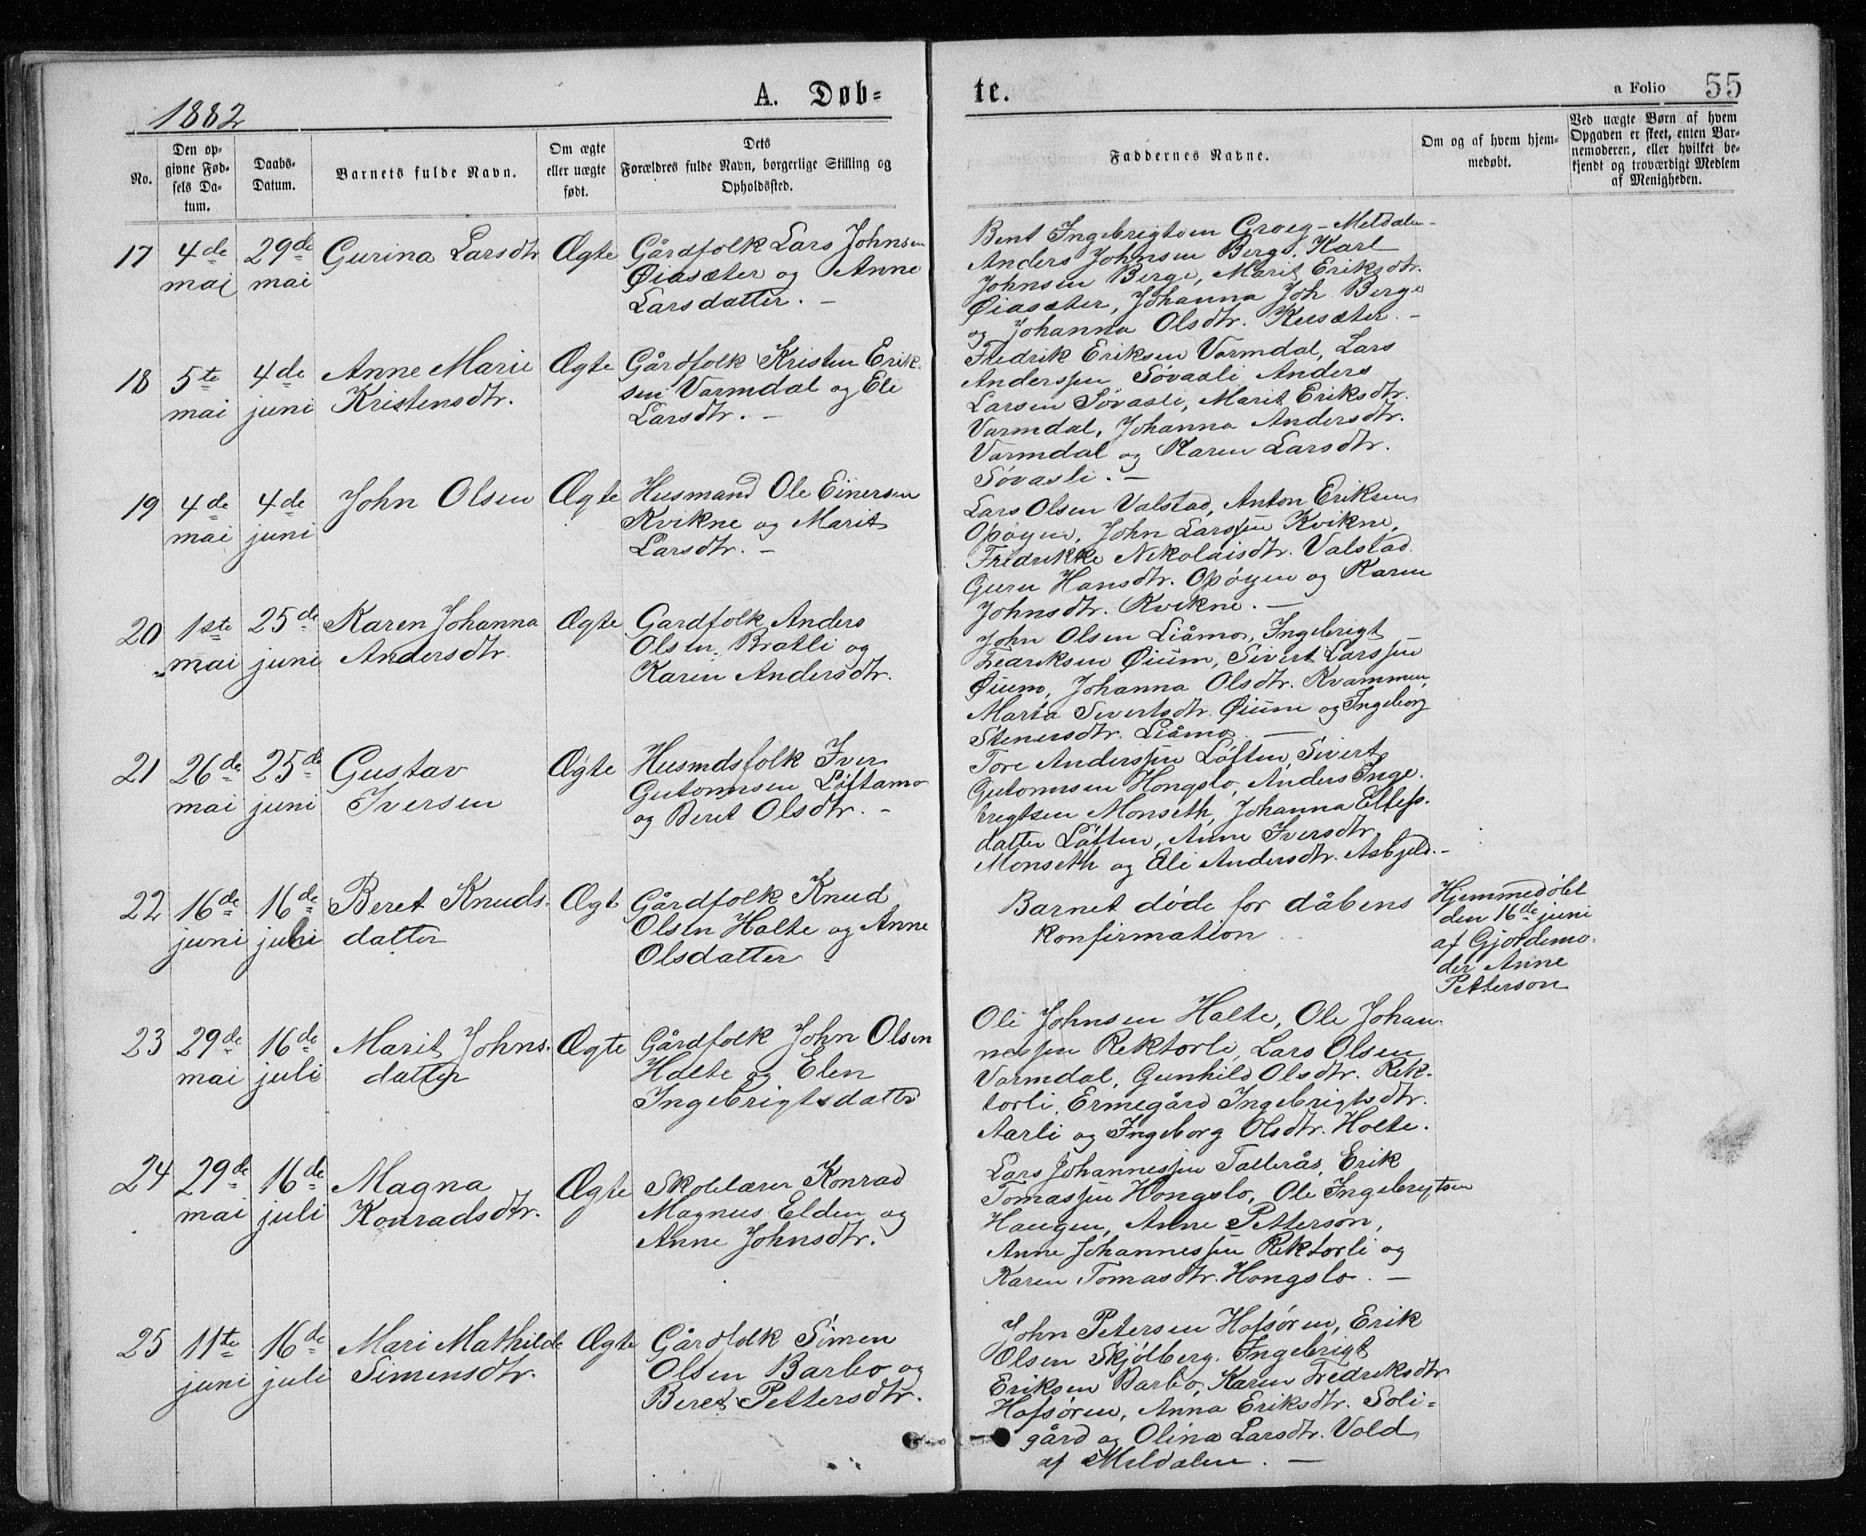 1882
A. Døb-
te.
a Folio 55
No.
Den op-
givne Fød-
sels Da-
tum.
Daabs-
Datum.
Barnets fulde Navn.
Om ægte
eller uægte
født.
Dets
Forældres fulde Navn, borgerlige Stilling og
Opholdssted.
Faddernes Navne.
Om og af hvem hjem-
medøbt.
Ved uægte Børn af hvem
Opgaven er skeet, enten Bar-
nemoderen, eller hvilket be-
kjendt og troværdigt Medlem
af Menigheden.
17
4de
mai
29de
mai
Gurina Larsdtr
Ægte
Gårdfolk Lars Johnsen
Øiasæter og Anne
Larsdatter. -
Bent Ingebrigtsen Meldalen-
Anders Johnsen Berge, Karl
Johnsen Berge, Marit Eriksdtr.
Øiasæter, Johanna Joh. Berge
og Johanna Olsdtr. -
18
5te
mai
4de
juni
Anne Marie
Kristensdtr.
Ægte
Gårdfolk Kristen Erik-
sen Varmdal og Eli
Larsdtr. -
Fredrik Eriksen Varmdal, Lars
Anderssen Søvasli Anders
Larsen Søvasli, Marit Eriksdtr.
Varmdal, Johanna Andersdtr.
Varmdal og Karen Larsdtr.
Søvasli. -
19
4de
mai
4de
juni
John Olsen
Ægte
Husmand Ole Einersen
Kvikne og Marit
Larsdtr. -
Lars Olsen Valstad, Anton Eriksen
Opøyen, John Larssen Kvikne,
Fredrikke Nikolaisdtr. Valstad.
Guru Hansdtr. Opøyen og Karen
Johnsdtr. Kvikne. -
20
1ste
mai
25de
juni
Karen Johanna
Andersdtr.
Ægte
Gardfolk Anders
Olsen Bratli og
Karen Andersdtr.
John Olsen Liåmo, Ingebrigt
Fedriksen Øium, Sivert Larssen
Øium, Johanna Olsdtr. Kvammen,
Marta Sivertsdtr. Øium og Ingeborg
Stenersdtr. Liåmo. -
21
26de
mai
25de
juni
Gustav
Iversen
Ægte
Husmdsfolk Iver
Gutormsen Løftamo
og Beret Olsdtr. -
Tore Anderssen Løften, Sivert
Gutormsen Hongslo, Anders Inge-
brigtsen Monseth, Johanna
datter Løften, Anne Iversdtr.
Monseth og Eli Andersdtr. Asbjeld. -
22
16de
juni
16de
juli
Beret Knuds-
datter
Ægt
Gårdfolk Knud
Olsen Holte og Anne
Olsdatter
Barnet døde før dåbens
konfirmation
Hjemmedøbt
den 16de juni
af Gjordemo-
der Anne
Petterson
23
29de
mai
16de
juli
Marit Johns-
datter
Ægte
Gårdfolk John Olsen
Holte og Elen
Ingebrigtsdatter
Ole Johnsen Holte, Ole Johan-
nessen Rektorli, Lars Olsen
Varmdal, Gunhild Olsdtr. Rek-
torli, Ermegård Ingebrigtsdtr.
Aarli og Ingeborg Olsdtr. Holte.
24
29de
mai
16de
juli
Magna
Konradsdtr.
Ægte
Skolelærer Konrad
Magnus Elden og
Anne Johnsdtr.
Lars Johannessen Tallerås, Erik
Tomassen Hongslo, Ole Ingebrigtsen
Haugen, Anne Petterson,
Anne Johannessen Rektorli og
Karen Tomasdtr. Hongslo. -
25
11te
juni
16de
juli
Mari Mathilde
Simensdtr.
Ægte
Gårdfolk Simen
Olsen Barbo og
Beret Pettersdtr.
John Petersen Hofsøren, Erik
Olsen Skjølberg, Ingebrigt
Eriksen Barbo, Karen Fredriksdtr
Hofsøren, Anna Eriksdtr. Soli-
gård og Olina Larsdtr. Vold
af Meldalen. -